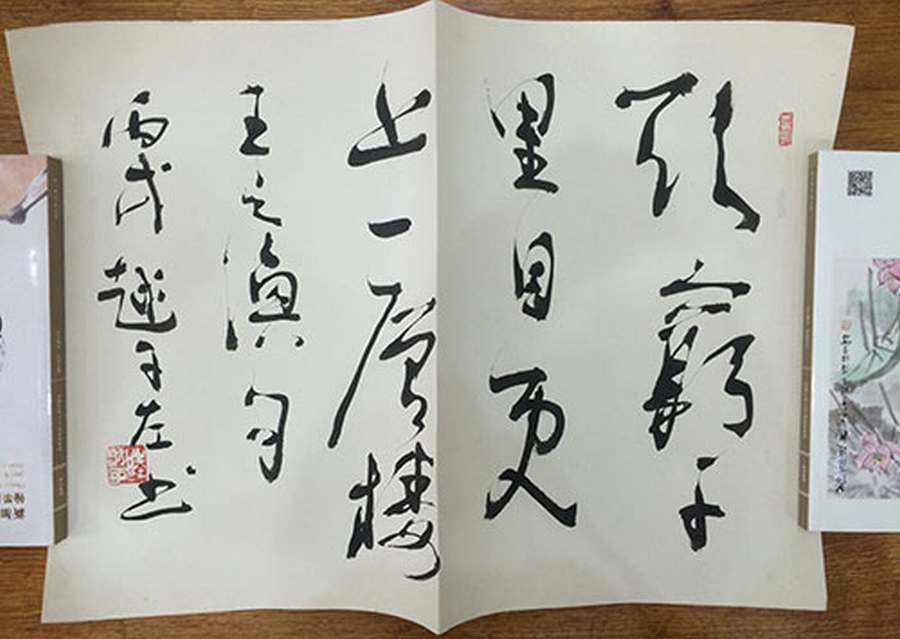 欲窮千
里目更
上一層樓
王之渙句
丙戌 越千左書